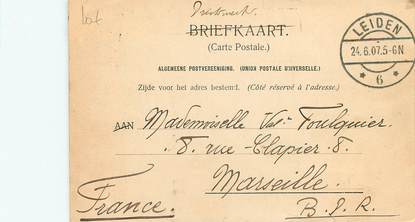 Drukwerk.
BRIEFKAART.
(Carte Postale.)
ALGEMEENE POSTVEREENIGING. (UNION POSTALE UNIVERSELLE.)
Zijde voor het adres bestemd. (Côté réservé à l'adresse.)
LEIDEN
24.6.07.5-6N
* 6 *
AAN Mademoiselle Foulquier.
8. rue-Clapier-8.
Marseille.
France. B. d. R.